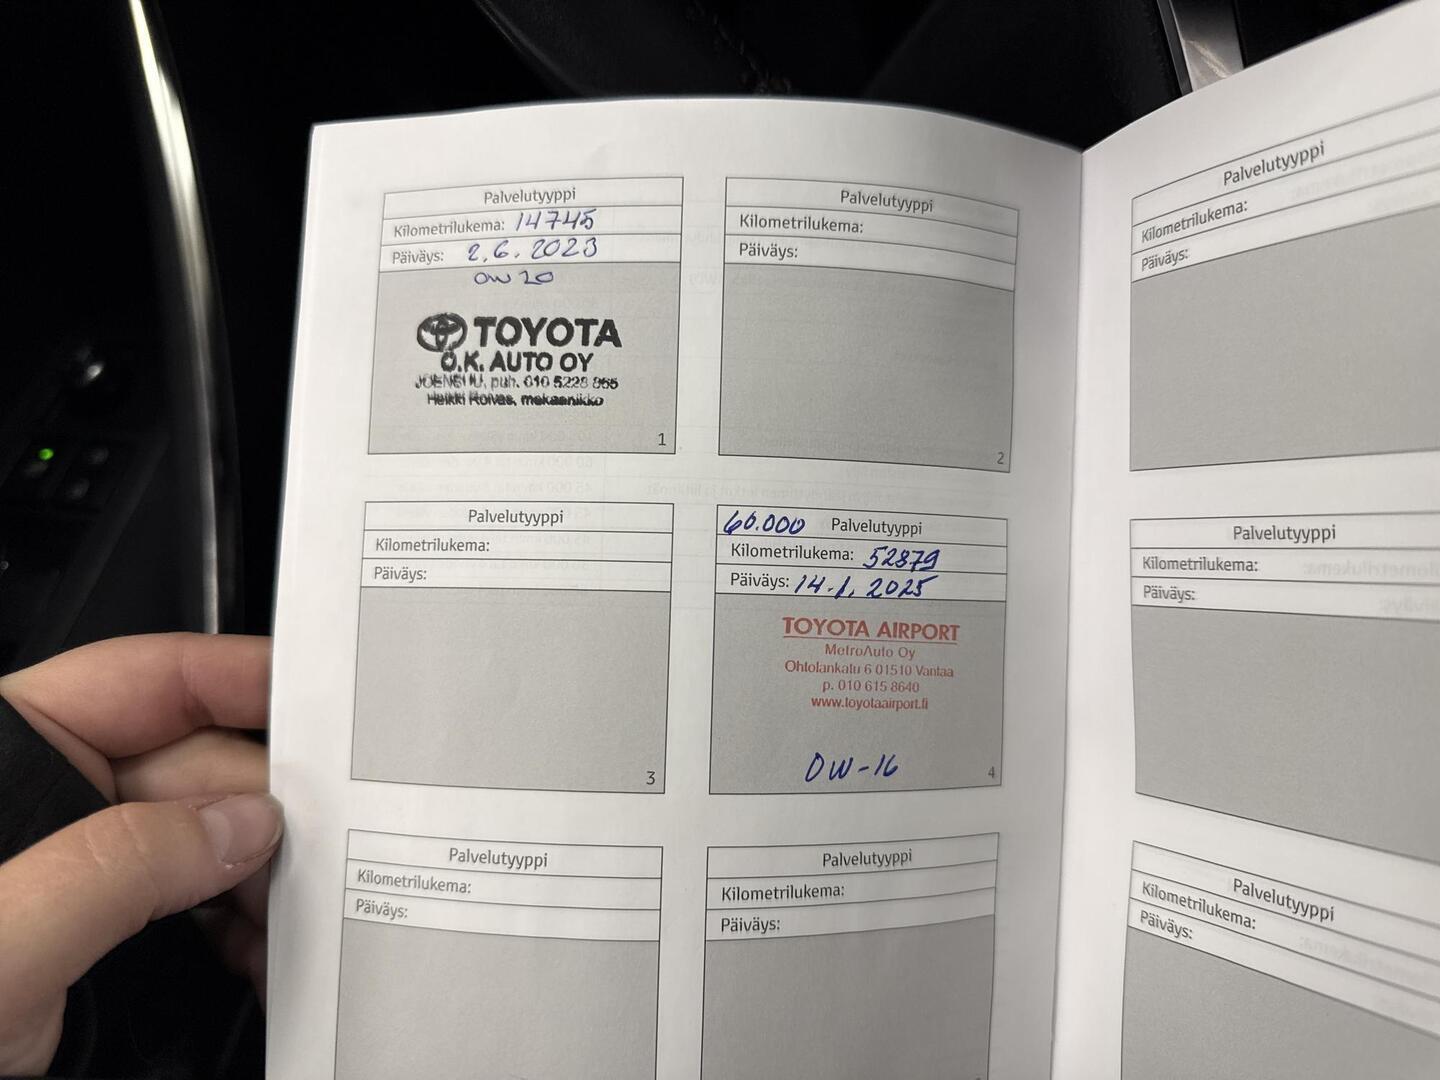 Palvelutyyppi
Kilometrilukema: 14745
Päiväys: 2.6.2023
OW 20
TOYOTA
O.K. AUTO OY
JOENSUU, puh. 010 5228 865
Heikki Roivas, mekaanikko
1
Palvelutyyppi
Kilometrilukema:
Päiväys:
2
Palvelutyyppi
Kilometrilukema:
Päiväys:
3
60.000 Palvelutyyppi
Kilometrilukema: 52879
Päiväys: 14.1.2025
TOYOTA AIRPORT
MetroAuto Oy
Ohtolankatu 6 01510 Vantaa
p. 010 615 8640
www.toyotaairport.fi
OW-16
4
Palvelutyyppi
Kilometrilukema:
Päiväys:
Palvelutyyppi
Kilometrilukema:
Päiväys:
Palvelutyyppi
Kilometrilukema:
Päiväys:
Palvelutyyppi
Kilometrilukema:
Päiväys:
Palvelutyyppi
Kilometrilukema:
Päiväys: